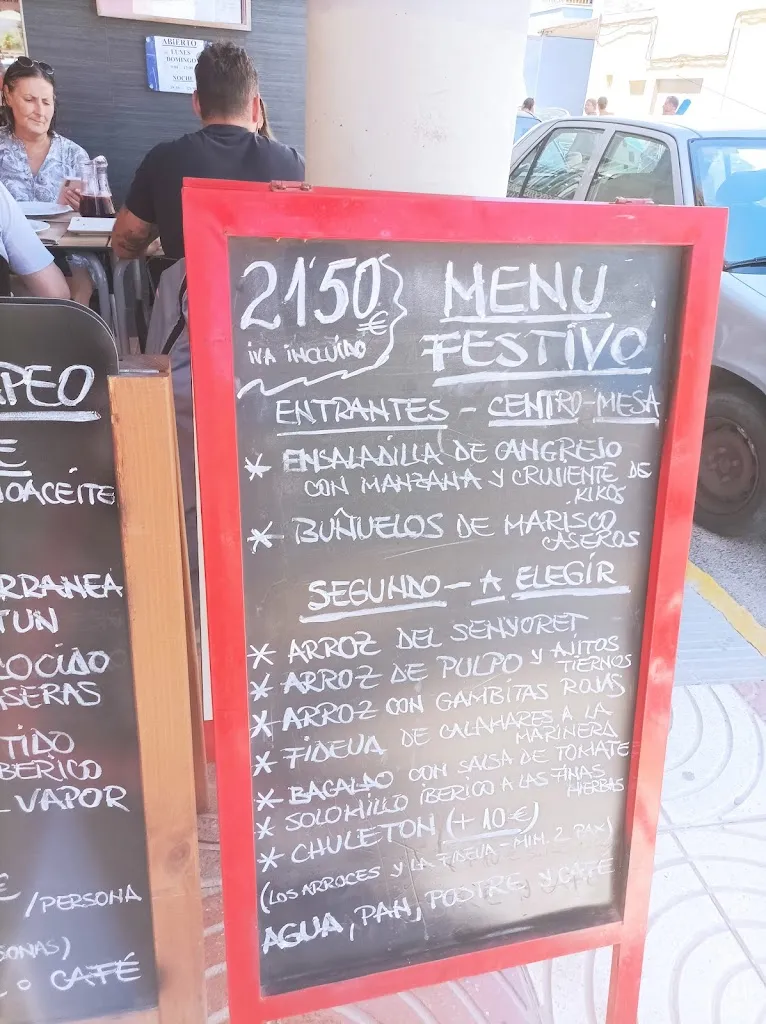 ABIERTO
LUNES
DOMINGO
NOCHE
21'50 €
IVA INCLUIDO
MENU
FESTIVO
ENTRANTES - CENTRO-MESA
* ENSALADILLA DE CANGREJO
CON MANZANA Y CRUJIENTE DE
KIKOS
* BUÑUELOS DE MARISCO
CASEROS
SEGUNDO - A ELEGIR
* ARROZ DEL SENYORET
* ARROZ DE PULPO Y AJITOS
TIERNOS
* ARROZ CON GAMBITAS ROJAS
* FIDEUA DE CALAMARES A LA
MARINERA
* BACALAO CON SALSA DE TOMATE
* SOLOMILLO IBERICO A LAS FINAS
HIERBAS
* CHULETON (+ 10 €)
(LOS ARROCES Y LA FIDEUA - MIM. 2 PAX)
AGUA, PAN, POSTRE Y CAFE
PEO
E
OACEITE
RRANEA
TUN
COCIDO
SERAS
TIDO
BERICO
VAPOR
€
/PERSONA
SONAS)
O CAFÉ